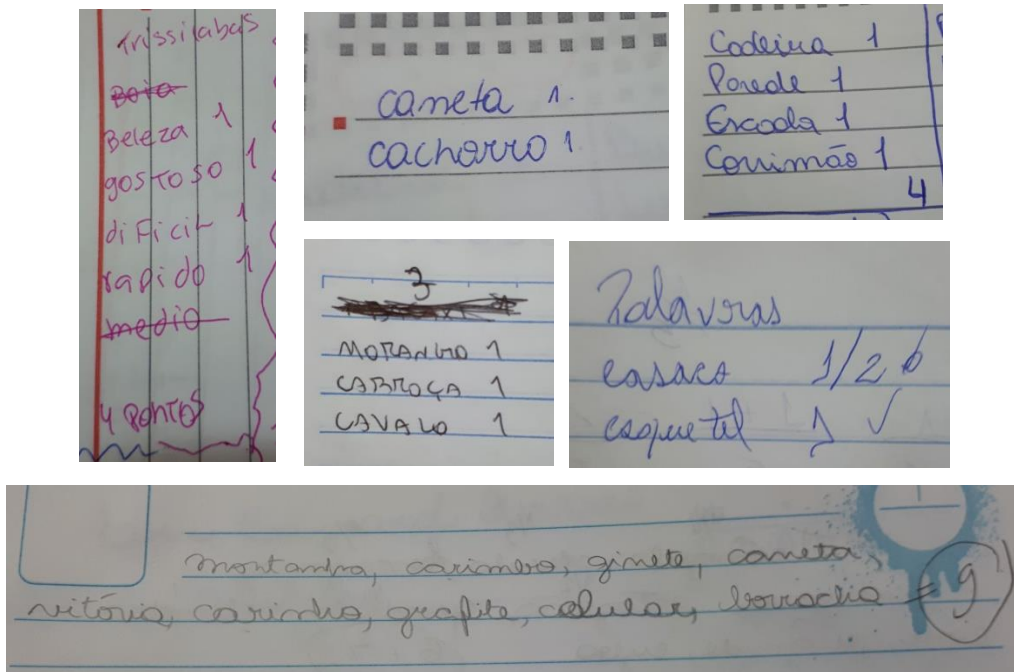 Trissilabas
Boia
Beleza 1
gostoso 1
dificil 1
rapido 1
medio
4 pontos
caneta 1.
cachorro 1
Cadeira 1
Parede 1
Escada 1
Corrimão 1
4
3
MORANGO 1
CARROÇA 1
CAVALO 1
Palavras
casaco 1/2
coquetel 1 ✓
montanha, carimbo, ginete, caneta,
vitória, carinho, grafite, celular, borracha = 9